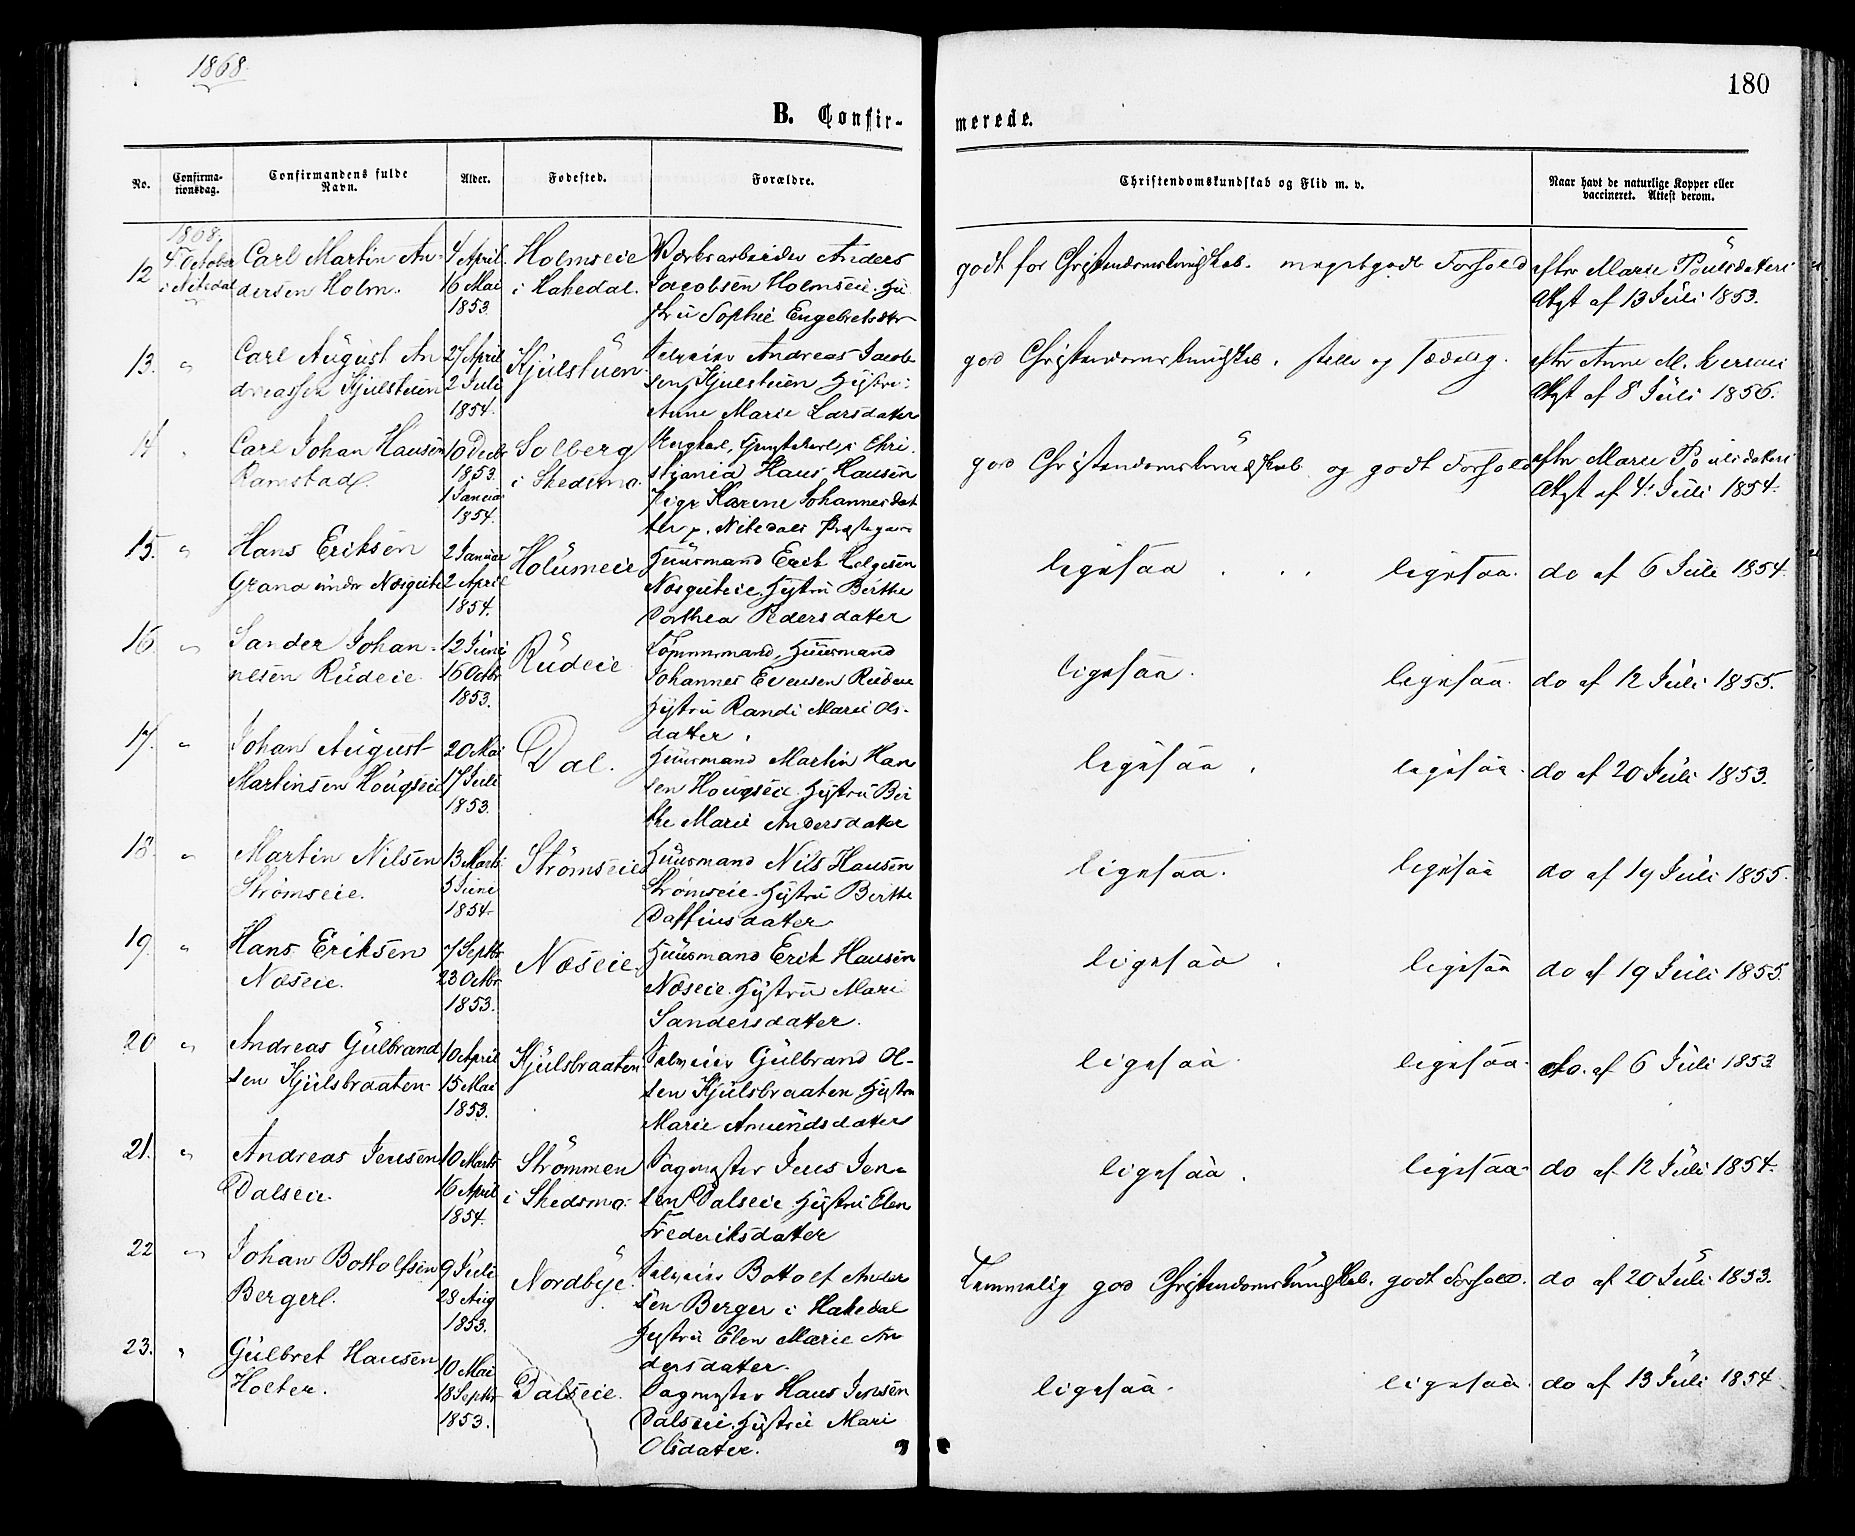 1868.
180
B. Confir-
merede.
No.
Confirma-
tionsdag.
Confirmandens fulde
Navn.
Alder.
Fødested.
Forældre.
Christendomskundskab og Flid m. v.
Naar havt de naturlige Kopper eller
vaccineret. Attest derom.
1868.
12 4 October Carl Martin An- 4 April Holmseie Værksarbeider Anders godt for Christendomskundskab. meget godt Forhold efter Marie Poulsdatters
i Nitedal dersen Holm. 16 Mai i Hakedal. Jacobsen Holmseie. Hu- Attest af 13 Juli 1853.
1853. stru Sophie Engebretsdtr
13. " Carl August An 27 April Kjulstuen Selveier Andreas Jacob- god Christendomskundskab. stille og sædelig. efter Anne M.
dreassen Kjulstuen 2 Juli sen Kjulstuen Hustru: Attest af 8 Juli 1856.
1854. Anne Marie Larsdatter
14 " Carl Johan Hansen 10 Decbr Solberg Ungkarl, Tjenestekarl i Chri- god Christendomskundskab og godt Forhold efter Marie Poulsdatters
Ramstad. 1853. i Skedsmo. stiania Hans Hansen Attest af 4. Juli 1854.
1 Januar Pige Karine Johannesdat
1854. ter p. Nitedals Præstegaard
15. " Hans Eriksen 2 Januar Holumeie Huusmand Erik Helgesen ligesaa ligesaa. do af 6 Juli 1854.
Grana under 2 April Hustru Birthe
1854. Dorthea Pedersdatter
16 " Sander Johan- 12 Juni Rudeie Tømmermand, Huusmand ligesaa. ligesaa. do af 12 Juli 1855.
nesen Rudeie 16 Octbr Johannes Evensen Rudeie
1853. Hustru Randi Marie Ols-
datter.
17. " Johan August 20 Mai Dal. Huusmand Martin Han ligesaa. ligesaa. do af 20 Juli 1853.
Martinsen Hougseie 17 Juli sen Hougseie Hustru Bir
1853. the Marie Andersdatter
18. " Martin Nilsen 13 Marts Strömseie Huusmand Nils Hansen ligesaa. ligesaa do af 19 Juli 1855.
Strömseie. 5 Juni Strømseie. Hustru Birthe
1854. Daffinsdatter
19. " Hans Eriksen 7 Septbr Næseie. Huusmand Erik Hansen ligesaa. ligesaa do af 19 Juli 1855
Næseie. 23 Octbr Næseie. Hustru Mari
1853. Sandersdatter.
20 " Andreas Gulbrand 10 April Kjulsbraaten Selveier Gulbrand Ol- ligesaa. ligesaa. do. af 6 Juli 1853
sen Kjulsbraaten 15 Mai sen Kjulsbraaten Hustru
1853. Marie Amundsdatter
21. " Andreas Jensen 10 Marts Strömmen Sagmester Jens Jen- ligesaa. ligesaa. do af 12 Juli 1854.
Dalseie. 16 April i Skedsmo. sen Dalseie. Hustru Elen
1854. Frederiksdatter
22 " Johan Bottolfsen 9 Juli Nordbye. Selveier Bottolf Ander Temmelig god Christendomskundskab. godt Forhold. do af 20 Juli 1853.
Berger. 28 Aug sen Berger i Hakedal
1853. Hustru Elen Marie An
dersdatter.
23. " Gulbret Hansen 10 Mai Dalseie. Sagmester Hans Jensen ligesaa. ligesaa. do af 13 Juli 1854
Holter. 18 Septbr Dalseie. Hustru Mari
1853. Olsdatter.